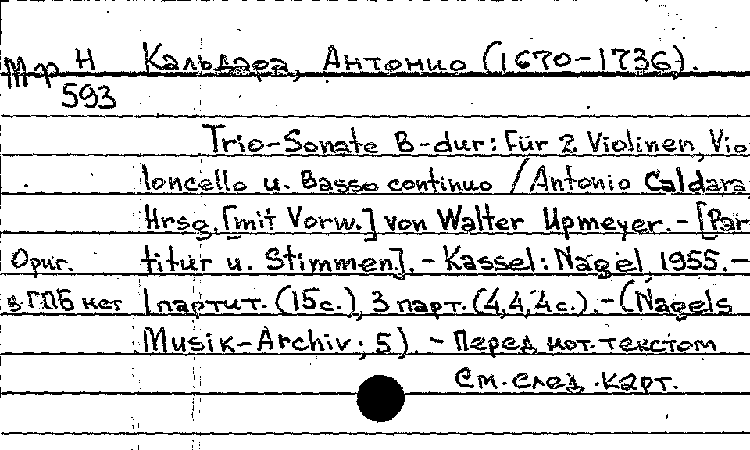 М ф Н 593 Кальдара, Антонио (1670-1736).
Trio-Sonate B-dur: Für 2 Violinen, Vio
loncello u. Basso continuo / Antonio Caldara
Hrsg. [mit Vorw.] von Walter Upmeyer. - [Par
Ориг. titur u. Stimmen]. - Kassel: Nagel, 1955. -
в ГПБ нет 1 партит. (15с.), 3 парт. (4,4,4с.). - (Nagels
Musik-Archiv; 5). - Перед нот. текстом
См. след. карт.